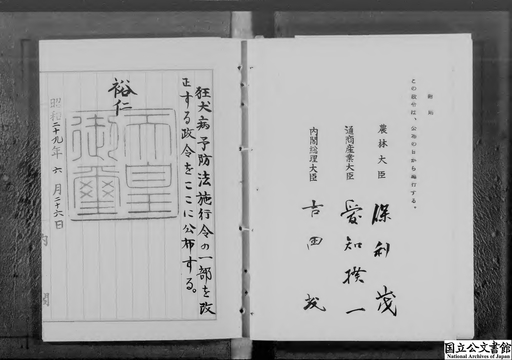 附則
この政令は、公布の日から施行する。
農林大臣 保利茂
通商産業大臣 愛知揆一
内閣総理大臣 吉田茂
狂犬病予防法施行令の一部を改
正する政令をここに公布する。
裕仁
天皇
御璽
昭和二十九年六月二十六日
内閣
国立公文書館
National Archives of Japan